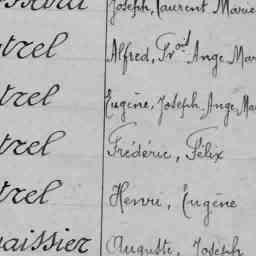 Joseph, Laurent Marie
trel Alfred, Pr oid Ange Mar
trel Eugène, Joseph Ange Ma
trel Frédéric, Félix
trel Henri, Eugène
aissier Auguste, Joseph